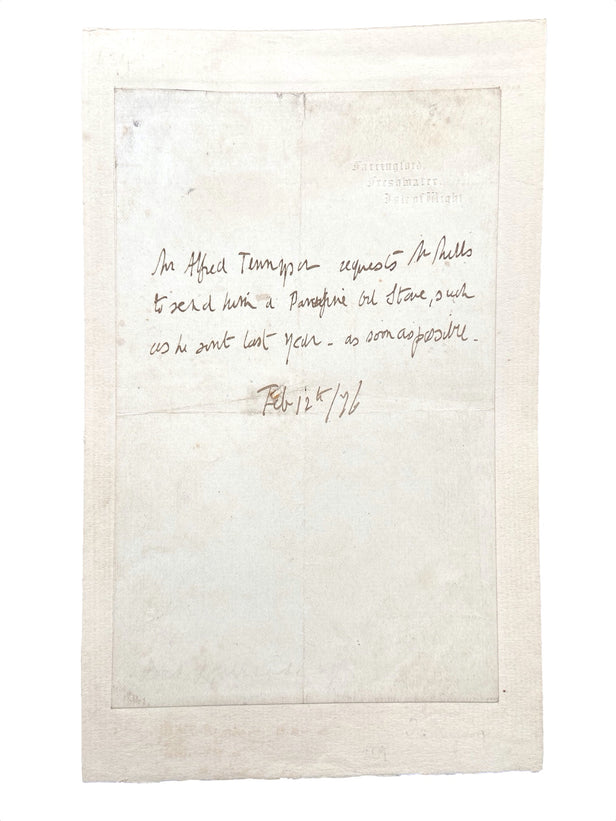 Farringford,
Freshwater,
Isle of Wight
Mr Alfred Tennyson requests Mr Mells
to send him a Paraffine Oil Stove, such
as he sent last year - as soon as possible -
Feb 12th/76